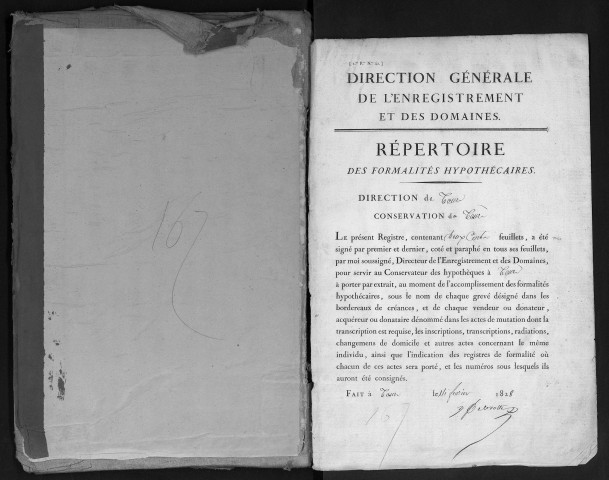 167
DIRECTION GÉNÉRALE
DE L'ENREGISTREMENT
ET DES DOMAINES.
RÉPERTOIRE
DES FORMALITÉS HYPOTHÉCAIRES.
DIRECTION de Tours
CONSERVATION de Tours
LE présent Registre, contenant feuillets, a été
signé par premier et dernier, coté et paraphé en tous ses feuillets,
par moi soussigné, Directeur de l'Enregistrement et des Domaines,
pour servir au Conservateur des hypothèques à Tours
à porter par extrait, au moment de l'accomplissement des formalités
hypothécaires, sous le nom de chaque grevé désigné dans les
bordereaux de créances, et de chaque vendeur ou donateur,
acquéreur ou donataire dénommé dans les actes de mutation dont la
transcription est requise, les inscriptions, transcriptions, radiations,
changemens de domicile et autres actes concernant le même
individu, ainsi que l'indication des registres de formalité où
chacun de ces actes sera porté, et les numéros sous lesquels ils
auront été consignés.
FAIT à Tours le 1828